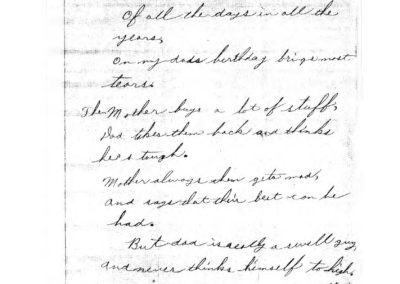 Of all the days in all the
years,
On my dads birthday brigs most
tears.
Then Mother buys a lot of stuff,
Dad takes them back and thinks
he's tough.
Mother always then gets mad,
and says dat their best can be
had.
But dad is really a swell guy,
and never thinks himself to high.